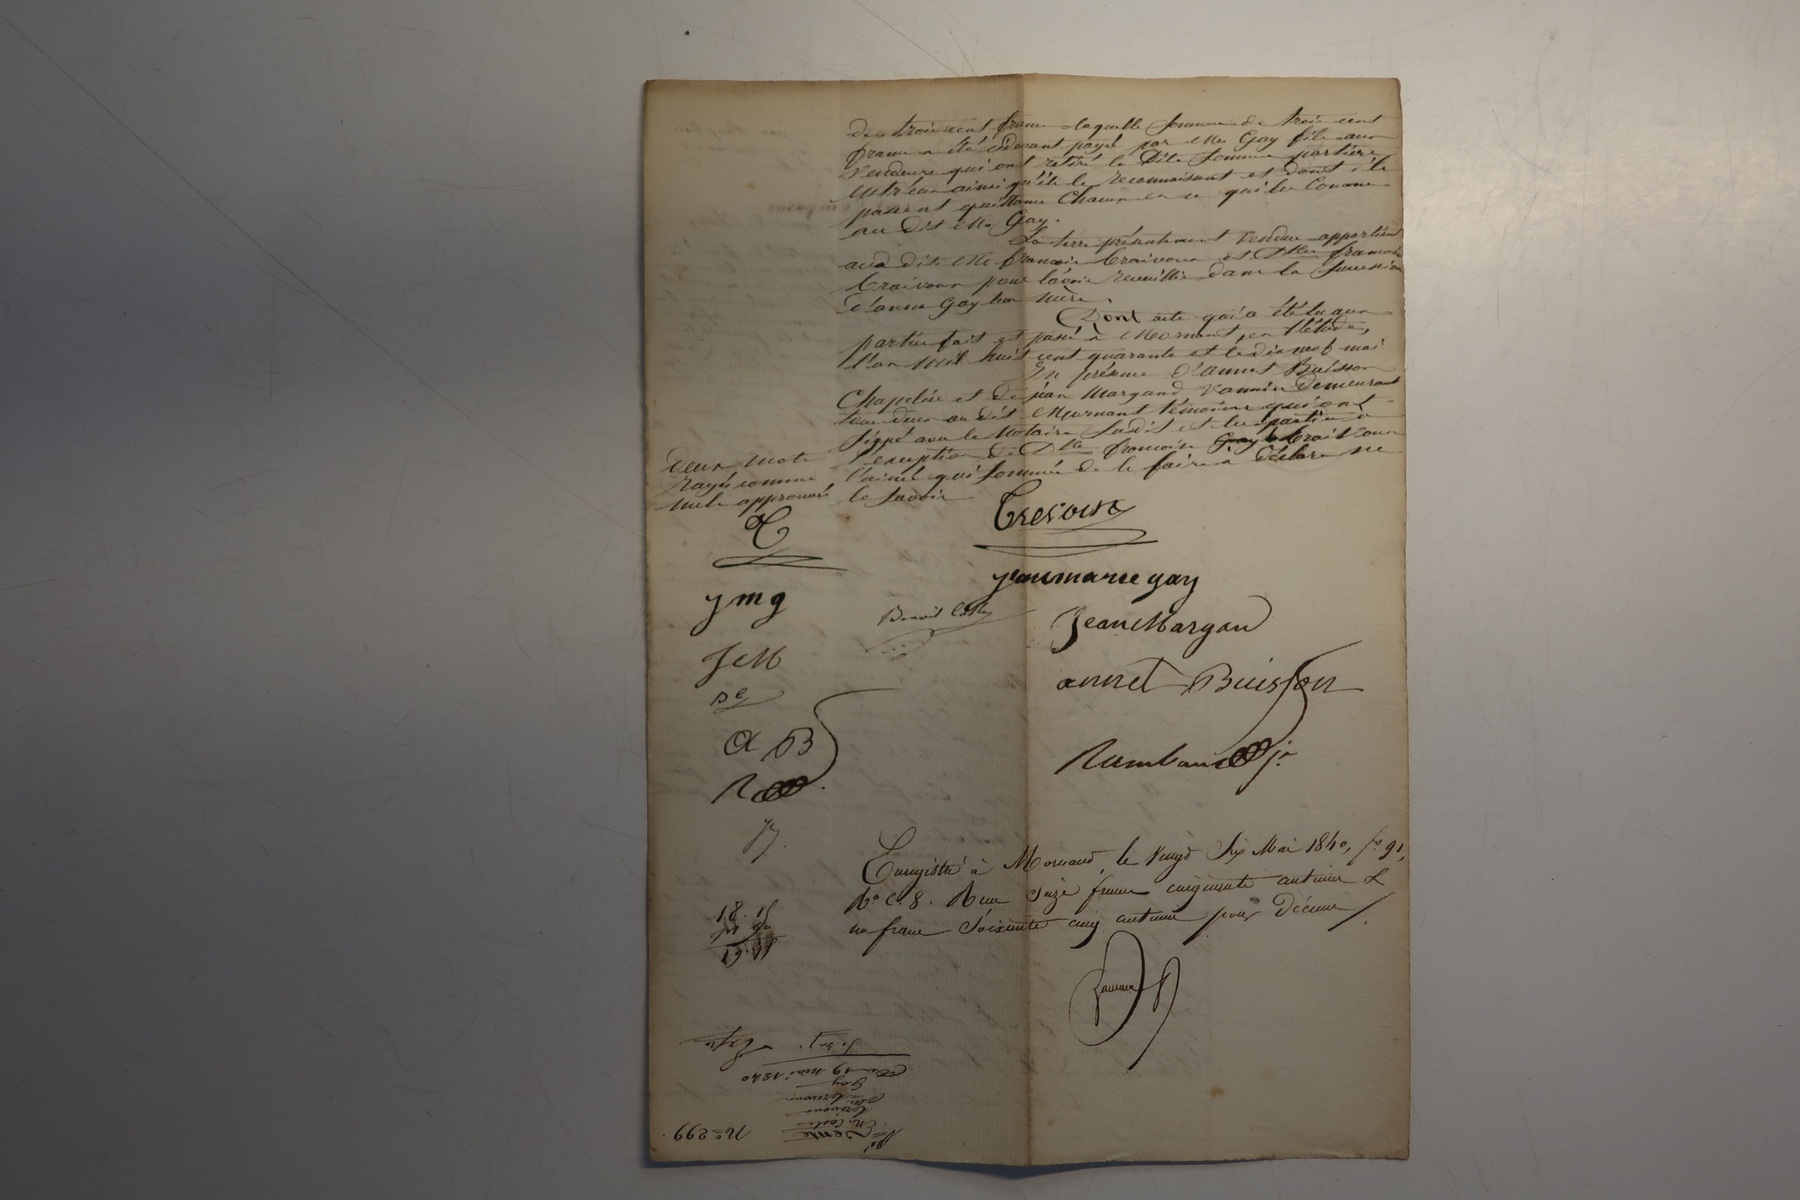 de trois cent francs laquelle somme de trois cent
francs a été payée par Me Gay fils aux
vendeurs qui ont retiré la dite somme
ainsi qu'ils le reconnaissent et dont ils
passent quittance chacun en ce qui les concerne
au dit Me Gay.
La terre présentement vendue appartient
aux dits Me françois Craivoux et Dlle francoise
Craivoux pour l'avoir recueillie dans la succession
d'anne Gay leur mère.
Dont acte qui a été lu aux
parties fait et passé à Mornant, en l'étude,
l'an mil huit cent quarante et le dix neuf mai
En présence d'annet Buisson
Chapelier et de jean Margand vannier demeurant
tous deux au dit Mornant témoins qui ont
signé avec le Notaire susdit et les parties à
l'exception de Dlle francoise Gay Craivoux
l'ainée qui sommée de le faire a déclaré ne
le savoir
Deux mots
rayés comme
nuls approuvés
C
Crevoux
jmg
jeanmarie gay
Benoit
JM
Jean Margan
AB
annet Buisson
R
Rambaud jn
Enregistré à Mornant, le vingt Six Mai 1840, fo 91,
No C. 8. Reçu seize francs cinquante centimes &
un franc soixante cinq centimes pour Décime
18. 15
No 299.
Vente
Gay
Du 19 mai 1840